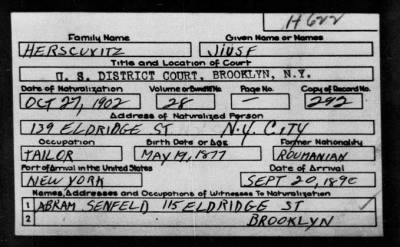 H622
Family Name Given Name or Names
HERSCUVITZ JIUSF
Title and Location of Court
U. S. DISTRICT COURT, BROOKLYN, N.Y.
Date of Naturalization Volume or Bundle No. Page No. Copy of Record No.
OCT 27, 1902 28 — 292
Address of Naturalized Person
129 ELDRIDGE ST N.Y. CITY
Occupation Birth Date or Age Former Nationality
TAILOR MAY 19, 1877 ROUMANIAN
Port of Arrival in the United States Date of Arrival
NEW YORK SEPT 20, 1890
Names, Addresses and Occupations of Witnesses To Naturalization
1 ABRAM SENFELD 115 ELDRIDGE ST
2 BROOKLYN